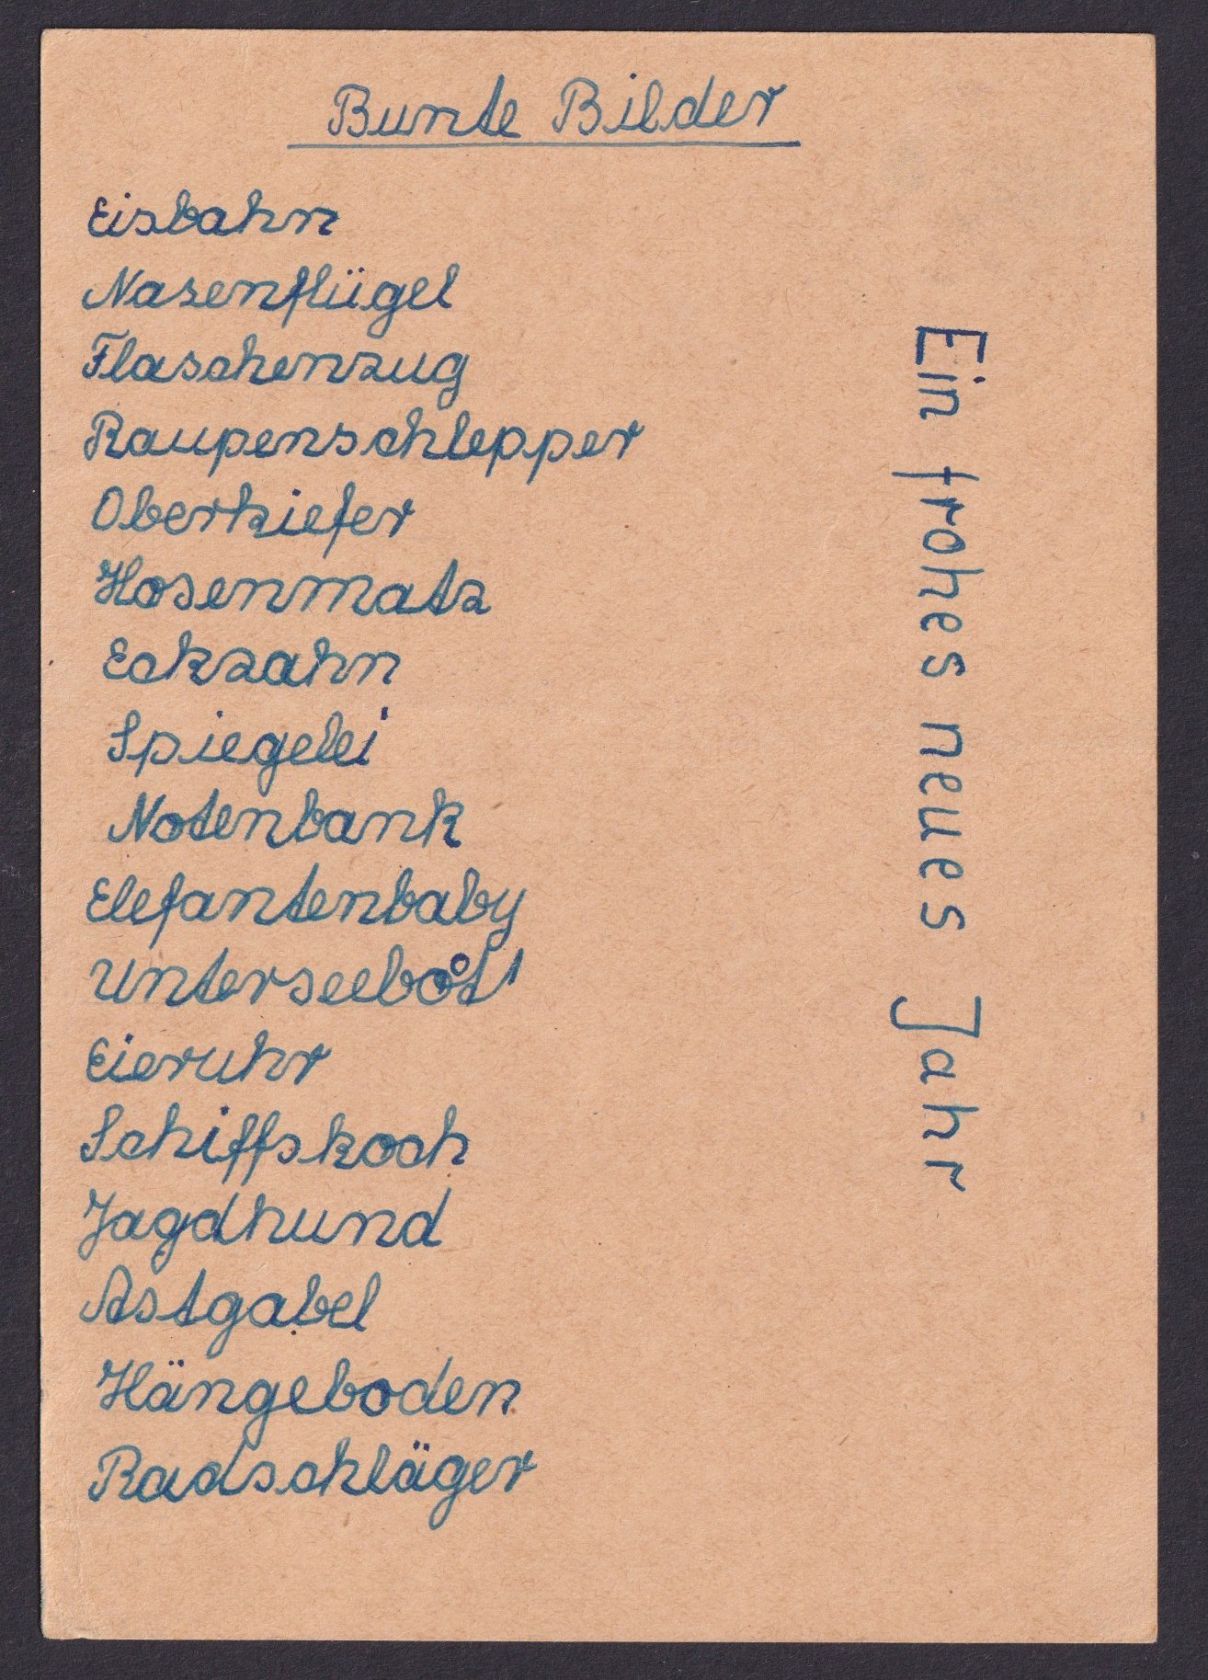 Bunte Bilder
Eisbahn
Nasenflügel
Flaschenzug
Raupenschlepper
Oberkiefer
Hosenmatz
Eckzahn
Spiegelei
Notenbank
Elefantenbaby
Unterseeboot
Eieruhr
Schiffskoch
Jagdhund
Astgabel
Hängeboden
Radschläger
Ein frohes neues Jahr